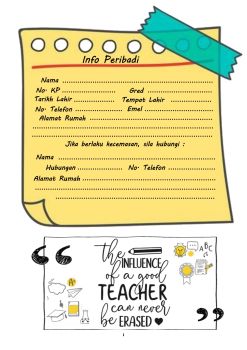 Info Peribadi
Nama ..............................
No. KP .................... Gred ....................
Tarikh Lahir .............. Tempat Lahir ..............
No. Telefon .................. Emel ....................
Alamat Rumah ..............................
Jika berlaku kecemasan, sila hubungi :
Nama ..............................
Hubungan .................. No. Telefon ..................
Alamat Rumah ..............................
the INFLUENCE
of a good
TEACHER
can never
be ERASED
ABC